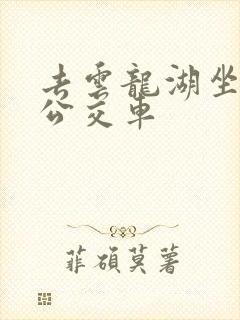 去雲龍湖坐
公交車
菲碩莫薯